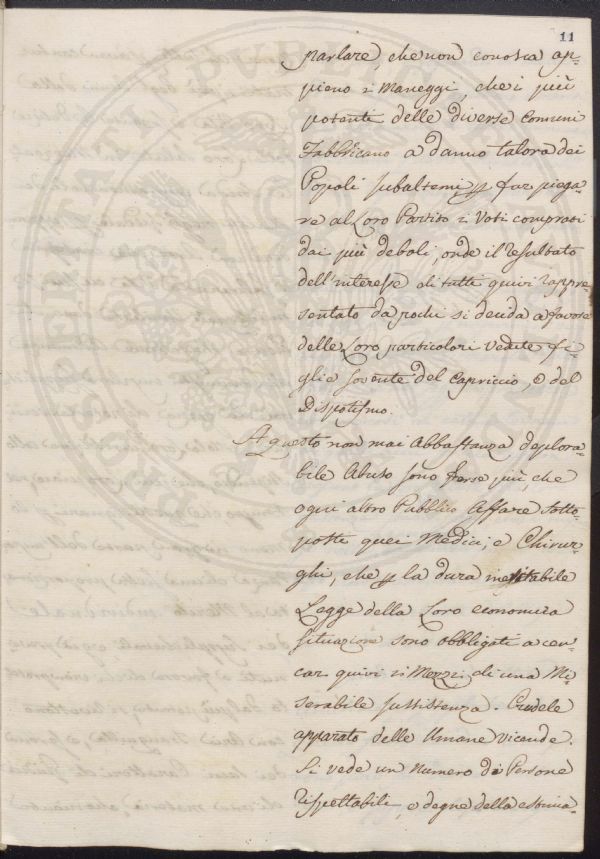 11
parlare, che non conosca ap=
pieno i maneggi, che i più
potenti delle diverse Comuni
Fabbricano a danno talora dei
Popoli subalterni p far piega=
re al Loro Partito i Voti comprati
dai più deboli, onde il resultato
dell'interesse di tutti quivi rappre=
sentato da pochi si decida a favore
delle Loro particolari vedute fi=
glie sovente del Capriccio, o del
Dispotismo.
A questo non mai abbastanza deplora=
bile Abuso sono forse più, che
ogni altro Pubblico Affare sotto=
posti quei Medici, e Chirur=
ghi, che p la dura inevitabile
Legge della Loro economica
situazione sono obbligati a cer=
car quivi i Mezzi di una Mi=
serabile sussistenza. Crudele
apparato delle Umane Vicende.
Si vede un Numero di Persone
rispettabili, e degne della estima=